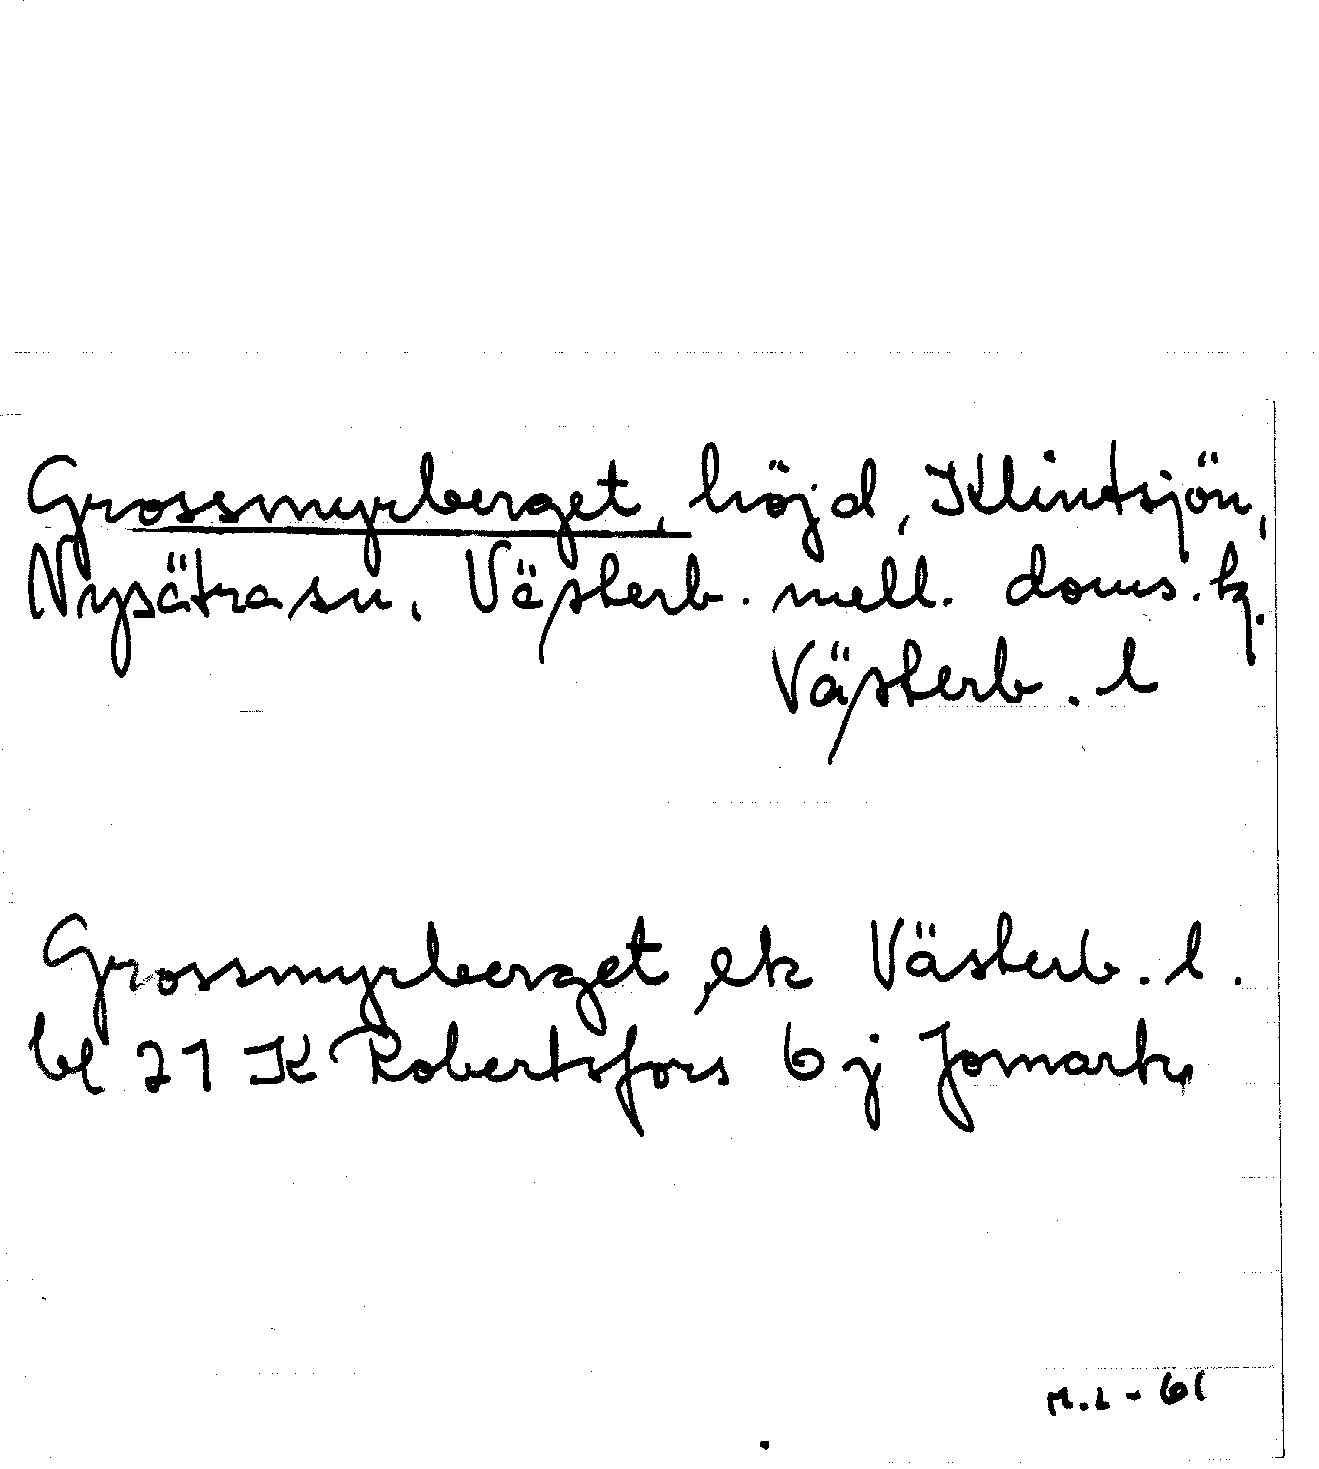 Grossmyrberget, höjd, Klintsjön,
Nysätra sn, Västerb. mell. doms. k.
Västerb. l
Grossmyrberget, ek Västerb. l.
bl 21 K Robertsfors 6 j Jomark
M.L-61